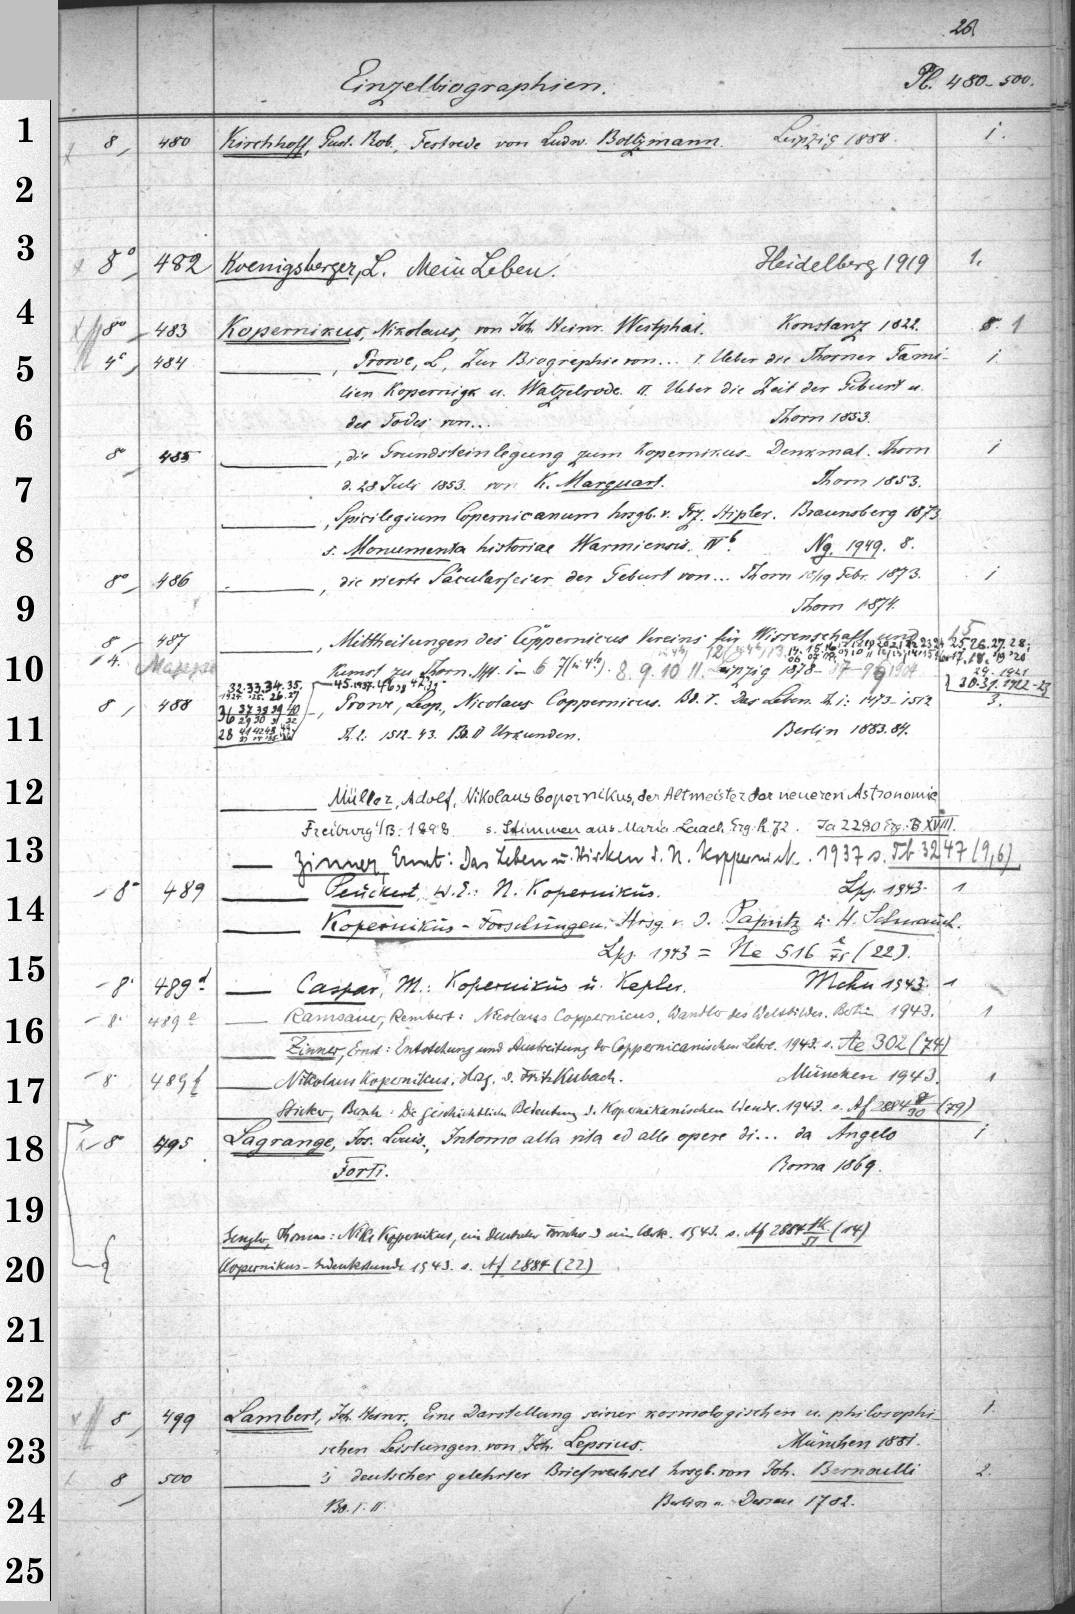 26
Einzelbiographien. Pb. 480-500.
1 8, 480 Kirchhoff, Gust. Rob., Festrede von Ludw. Boltzmann. Leipzig 1888. 1.
2
3 8° 482 Koenigsberger, L. Mein Leben. Heidelberg 1919 1.
4 8°, 483 Kopernikus, Nikolaus, von Joh. Heinr. Westphal. Konstanz 1822. 1
5 4°, 484 ———, Prowe, L, Zur Biographie von... I. Ueber die Thorner Fami-
lien Kopernigk u. Watzelrode. II. Ueber die Zeit der Geburt u.
6 des Todes von... Thorn 1853.
8° 485 ———, die Grundsteinlegung zum Kopernikus-Denkmal. Thorn
7 d. 28 Juli 1853. von K. Marquart. Thorn 1853.
———, Spicilegium Copernicanum hrsgb. v. Frz. Hipler. Braunsberg 1873
8 s. Monumenta historiae Warmiensis. IV b. Ng. 1949. 8.
8° 486 ———, die vierte Säcularfeier der Geburt von... Thorn 18/19 Febr. 1873.
9 Thorn 1874.
8, 487 ———, Mittheilungen des Coppernicus Vereins für Wissenschaft und
10 Mappe Kunst zu Thorn. Hft. 1-6 7(in 4°). 8. 9. 10 11. Leipzig 1878-
8, 488 ———, Prowe, Leop., Nicolaus Coppernicus. Bd. I. Das Leben. Th 1: 1473-1512 3.
11 Th. 2: 1512-43. Bd. II Urkunden. Berlin 1883.84.
12 ——— Müller, Adolf, Nikolaus Copernikus, der Altmeister der neueren Astronomie
Freiburg i/B. 1898 s. Stimmen aus Maria Laach. Erg. H. 72. Ja 2290 Erg. B XVIII.
13 ——— Zinner, Ernst: Das Leben u. Wirken d. N. Koppernick. 1937 s. Pb 3247 (9,6)
8° 489 ——— Peuckert, W. E.: N. Kopernikus. Lpz. 1943. 1
14 ——— Kopernikus-Forschungen. Hrsg. v. J. Papritz u. H. Schmauch.
Lpz. 1943 = Ne 516 (22).
15 8° 489 d ——— Caspar, M.: Kopernikus u. Kepler. Mchn 1943. 1
16 8° 489 e ——— Ramsauer, Rembert: Nicolaus Coppernicus. Wandler des Weltbildes. Berlin 1943. 1
——— Zinner, Ernst: Entstehung und Ausbreitung der Coppernicanischen Lehre. 1943. s. Ae 302 (74)
17 8 489 f ——— Nikolaus Kopernikus. Hrsg. v. Fritz Kubach. München 1943. 1
——— Sticker, Bernh.: Die geschichtliche Bedeutung d. Kopernikanischen Wende. 1943. s. Af 2884 8/30 (79)
18 8 495 Lagrange, Jos. Louis, Intorno alla vita ed alle opere di... da Angelo 1
Forti. Roma 1869.
19 Thomas: Kopernikus, ein Deutscher Forscher 1943. s. Af 2884 (14)
20 Kopernikus- 1943. s. Af 2884 (22)
21
22
8 499 Lambert, Joh. Heinr., Eine Darstellung seiner kosmologischen u. philosophi- 1.
23 schen Leistungen von Joh. Lepsius. München 1881.
8 500 ———'s deutscher gelehrter Briefwechsel hrsgb. von Joh. Bernoulli 2.
24 Bd. I. II. Berlin u. Dessau 1782.
25